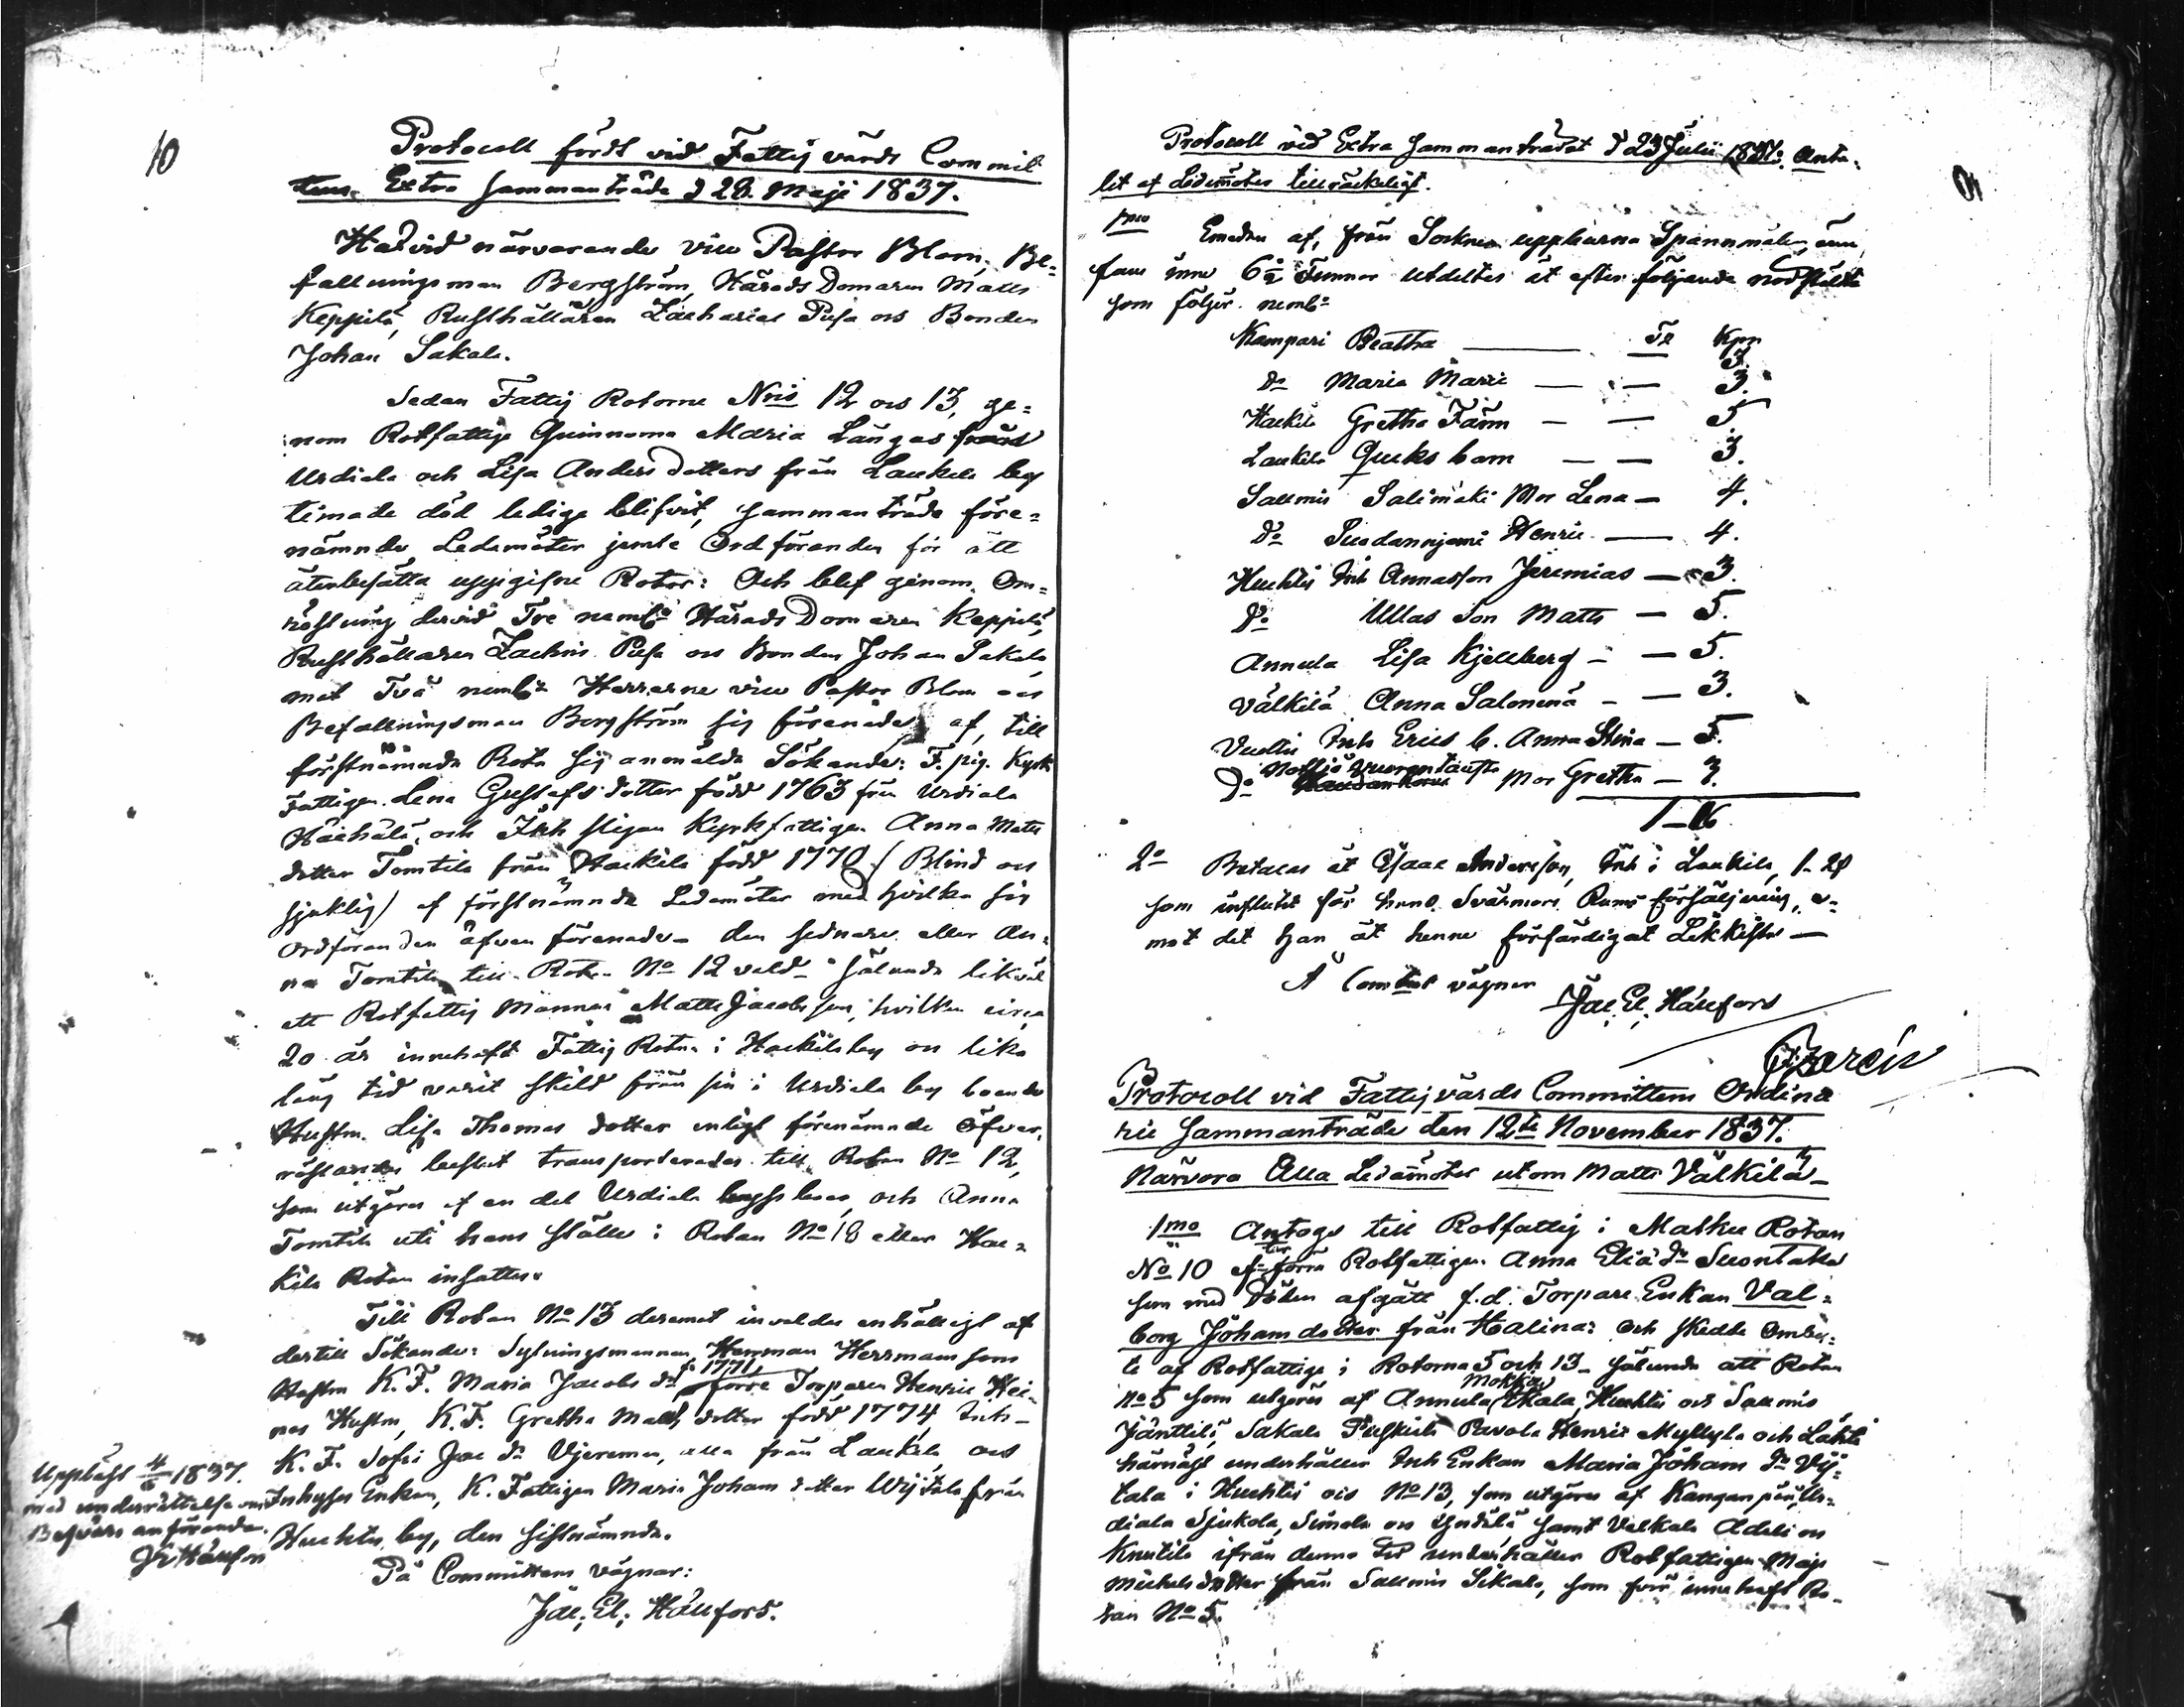 10
Protocoll fördt vid Fattigvårds Commit
tens Extra Sammanträde d 28. Maji 1837.
Härvid närvarande vice Pastor Blom, Be=
fallningsman Bergström, Härads Domaren Matts
Keppilä, Rusthållaren Zacharias Pusa och Bonden
Johan Sakala.
Sedan Fattig Rotorne Nris 12 och 13, ge=
nom Rotfattige Qvinnorna Maria Långas från
Urdiala och Lisa Anders dotters från Laukela by
timade död ledige blifvit, sammanträdde före=
nämnde Ledamöter jemte Ordföranden för att
återbesätta uppgifne Rotor: Och blef genom Om=
röstning dervid Tre neml: Härads Domaren Keppilä,
Rusthållaren Zachris Pusa och Bonden Johan Sakala
mot Två neml: Herrarne vice Pastor Blom och
Befallningsman Bergström sig förenade af, till
förstnämnda Rota sig anmälda Sökander: F. pig. Kyrk
Fattigen Lena Gustafs dotter född 1763 från Urdiala
Hächälä, och Inh pigan Kyrkfattigen Anna Matts
dotter Tomtila från Hackila född 1770 (Blind och
sjuklig) af förstnämnda Ledamöter med hvilka sig
Ordföranden äfven förenade den sednare eller An=
na Tomtila till Rotan No 12 vald sålunda likväl
att Rotfattig Mannen Matts Jacobsson, hvilken circa
20 år innehaft Fattig Rotan i Hackila by och lika
lång tid varit skild från sin i Urdiala by boende
Hustru Lisa Thomas dotter enligt förenämnde Öfver
röstandes beslut transporterades till Rotan No 12,
som utgöres af en del Urdiala byssboer, och Anna
Tomtila uti hans ställe i Rotan No 18 eller Hac=
kila Rotan insattes.
Till Rotan No 13 deremot invaldes enhälligt af
dertill Sökande: Sytningsmannen Herman Hermansson
Hustru K. F. Maria Jacobs dr f. 1771, förre Torparen Henric Hei
nos Hustru, K. F. Gretha Matts dotter född 1774, Inh-
K. F. Sofia Jac dr Vjerema, alla från Laukela, och
Inhyses Enkan, K. Fattigen Maria Johans dotter Wijtala från
Huchtis by, den sistnämnda.
På Committéens vägnar:
Jac. El. Hällfors.
Uppläst 4/6 1837.
med underrättelse om
Besvärs anförande.
JE Hällfors
Protocoll vid Extra Sammanträdet d 23 Julii 1837. Anta-
let af Ledamöter tillräckeligt.
1mo Emedan af, från Socknen uppburna Spannmålen, ännu
fans inne 6½ Tunnor utdeltes åt efter följande nödstälda
som följer. neml:
Kampari Beatha — Tr Kpr 3.
Do Maria Marii — — 3.
Hackila Gretha Färm — — 5
Laukela Qveks barn — — 3.
Salmis Salimäki Mor Lena — 4.
Do Suodanniemi Henric — 4.
Huchtis Inh Annasson Jeremias — 3.
Do Ullas Son Matts — 5.
Annula Lisa Kjellberg — — 5.
Välkilä Anna Salomena — — 3.
Vuoltis Inh Erics b. Anna Stina — 5.
Do Mor Gretha — 3.
1–16
2o Betalas åt Isaac Andersson, Inh i Laukela, 1. 28
som influtit för hans Svärmors Rums försäljning, e=
mot det han åt henne förfärdigat Likkista —
Å Comiténs vägnar
Jac. El. Hällfors
Protocoll vid Fattigvårds Committéens Ordina
rie Sammanträde den 12te November 1837.
Närvoro Alla Ledamöter utom Matts Välkilä
1mo Antogs till Rotfattig i Matku Rotan
No 10 efter förra Rotfattigen Anna Eliä dr Suontaka
som med Döden afgått f.d. Torpare Enkan Val=
borg Johans dotter från Halina: Och skedde Omby=
te af Rotfattige i Rotorna 5 och 13 sålunda att Rotan
No 5 som utgöres af Annula Mokka, Huchtis och Salmis
Jänttilä, Sakala Puskula Pavola Henric Myllylä och Lakla
härnäst underhåller Inh Enkan Maria Johans dr Vij=
tala i Huchtis och No 13, som utgöres af Kanganpää, Ur=
diala Sjukola, Simola och Yndilä samt Valkala Adeli och
Knutila ifrån denna tid underhåller Rotfattigen Maja
Michels dotter från Salmis Sikala, som förr innehaft Ro=
tan No 5.